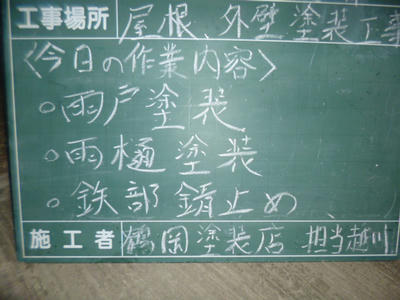 工事場所 屋根、外壁塗装工事
〈今日の作業内容〉
○雨戸塗装
○雨樋塗装
○鉄部錆止め
施工者 鶴岡塗装店 担当越川